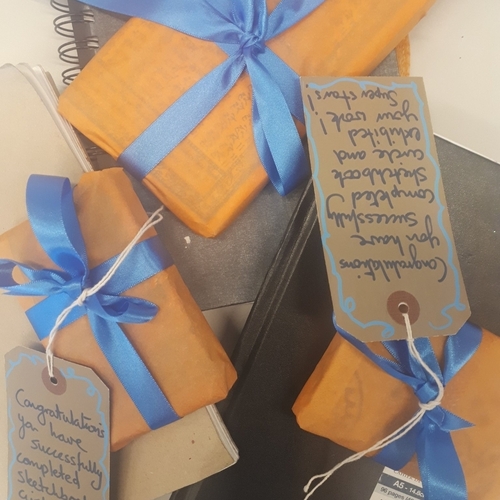 Congratulations
you have
successfully
completed
sketchbook
circle and
exhibited
your work!
Super stars!
Congratulations
you have
successfully
completed
sketchbook
A5 - 14.8